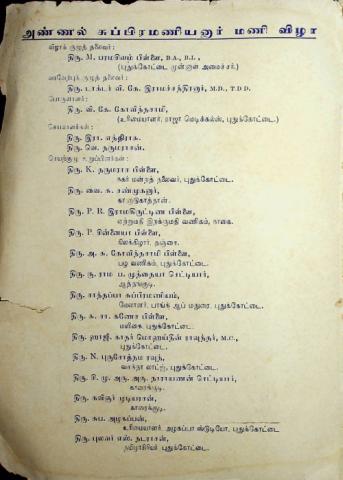 அண்ணல் சுப்பிரமணியனார் மணி விழா
விழாக் குழுத் தலைவர்:
திரு. M. பரமசிவம் பிள்ளை, B.A., B.L.,
(புதுக்கோட்டை முன்னாள் அமைச்சர்.)
வரவேற்புக் குழுத் தலைவர்:
திரு. டாக்டர் வி. கே. இராமச்சந்திரனார், M.D., T.D.D.
பொருளாளர்:
திரு. வி. கே. கோவிந்தசாமி,
(உரிமையாளர், ராஜா மெடிக்கல்ஸ், புதுக்கோட்டை.)
செயலாளர்கள்:
திரு. இரா. எத்திராசு.
திரு. வெ. தருமராசன்.
செயற்குழு உறுப்பினர்கள்:
திரு. K. தருமராச பிள்ளை,
நகர் மன்றத் தலைவர், புதுக்கோட்டை.
திரு. வை. சு. சண்முகனார்,
கானாடுகாத்தான்.
திரு. P. R. இராமகிருட்டிண பிள்ளை,
ஏற்றுமதி இறக்குமதி வணிகம், நாகை.
திரு. P. சின்னையா பிள்ளை,
நிலக்கிழார், தஞ்சை.
திரு. அ. சு. கோவிந்தசாமி பிள்ளை,
பழ வணிகம், புதுக்கோட்டை.
திரு. கு. ராம. ப. முத்தையா செட்டியார்,
ஆத்தங்குடி.
திரு. சாத்தப்பா சுப்பிரமணியம்,
பாங்க் ஆப் மதுரை, புதுக்கோட்டை.
திரு. சு. சா. கணேச பிள்ளை,
மளிகை, புதுக்கோட்டை.
திரு. ஹாஜி. காதர் மொஹய்தீன் ராவுத்தர், M.C.,
புதுக்கோட்டை.
திரு. N. புருசோத்தம ராவ்,
வசந்தா லாட்ஜ், புதுக்கோட்டை.
திரு. பி. மு. அரு. அரு. நாராயணன் செட்டியார்,
காரைக்குடி.
திரு. கவிஞர் முடியரசன்,
காரைக்குடி.
திரு. சுப. அழகப்பன்,
உரிமையாளர், அழகப்பா ஸ்டுடியோ, புதுக்கோட்டை
திரு. புலவர் எஸ். நடராசன்,
தமிழாசிரியர், புதுக்கோட்டை.